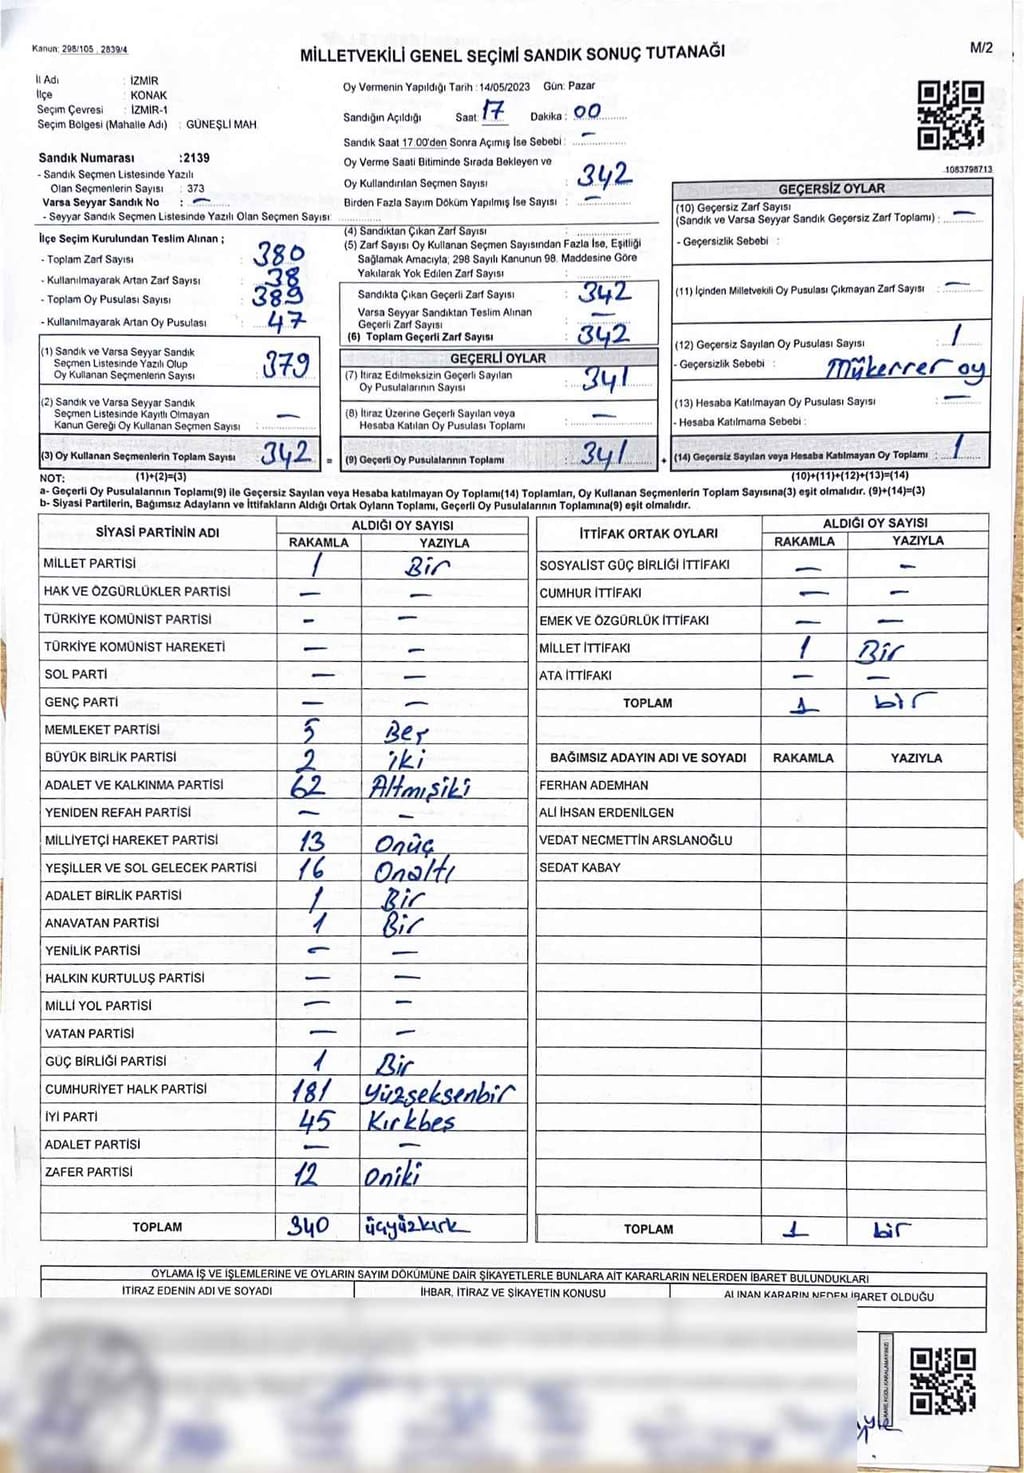 Kanun: 298/105 2839/4
MİLLETVEKİLİ GENEL SEÇİMİ SANDIK SONUÇ TUTANAĞI
M/2
İl Adı : İZMİR
İlçe : KONAK
Seçim Çevresi : İZMİR-1
Seçim Bölgesi (Mahalle Adı) : GÜNEŞLİ MAH
Oy Vermenin Yapıldığı Tarih : 14/05/2023 Gün: Pazar
Sandığın Açıldığı Saat: 17 Dakika: 00
Sandık Saat 17.00'den Sonra Açımış İse Sebebi : –
Oy Verme Saati Bitiminde Sırada Bekleyen ve
Oy Kullandırılan Seçmen Sayısı : 342
Birden Fazla Sayım Döküm Yapılmış İse Sayısı : –
Sandık Numarası :2139
- Sandık Seçmen Listesinde Yazılı
Olan Seçmenlerin Sayısı : 373
Varsa Seyyar Sandık No : –
- Seyyar Sandık Seçmen Listesinde Yazılı Olan Seçmen Sayısı :
1083798713
İlçe Seçim Kurulundan Teslim Alınan ;
- Toplam Zarf Sayısı : 380
- Kullanılmayarak Artan Zarf Sayısı : 38
- Toplam Oy Pusulası Sayısı : 389
- Kullanılmayarak Artan Oy Pusulası : 47
(1) Sandık ve Varsa Seyyar Sandık
Seçmen Listesinde Yazılı Olup
Oy Kullanan Seçmenlerin Sayısı : 379
(2) Sandık ve Varsa Seyyar Sandık
Seçmen Listesinde Kayıtlı Olmayan
Kanun Gereği Oy Kullanan Seçmen Sayısı : –
(3) Oy Kullanan Seçmenlerin Toplam Sayısı 342 =
(4) Sandıktan Çıkan Zarf Sayısı :
(5) Zarf Sayısı Oy Kullanan Seçmen Sayısından Fazla İse, Eşitliği
Sağlamak Amacıyla, 298 Sayılı Kanunun 98. Maddesine Göre
Yakılarak Yok Edilen Zarf Sayısı :
Sandıkta Çıkan Geçerli Zarf Sayısı : 342
Varsa Seyyar Sandıktan Teslim Alınan
Geçerli Zarf Sayısı : –
(6) Toplam Geçerli Zarf Sayısı : 342
GEÇERLİ OYLAR
(7) İtiraz Edilmeksizin Geçerli Sayılan
Oy Pusulalarının Sayısı : 341
(8) İtiraz Üzerine Geçerli Sayılan veya
Hesaba Katılan Oy Pusulası Toplamı : –
(9) Geçerli Oy Pusulalarının Toplamı : 341 +
GEÇERSİZ OYLAR
(10) Geçersiz Zarf Sayısı
(Sandık ve Varsa Seyyar Sandık Geçersiz Zarf Toplamı) : –
- Geçersizlik Sebebi :
(11) İçinden Milletvekili Oy Pusulası Çıkmayan Zarf Sayısı : –
(12) Geçersiz Sayılan Oy Pusulası Sayısı : 1
- Geçersizlik Sebebi : Mükerrer oy
(13) Hesaba Katılmayan Oy Pusulası Sayısı : –
- Hesaba Katılmama Sebebi :
(14) Geçersiz Sayılan veya Hesaba Katılmayan Oy Toplamı : 1
NOT: (1)+(2)=(3) (10)+(11)+(12)+(13)=(14)
a- Geçerli Oy Pusulalarının Toplamı(9) ile Geçersiz Sayılan veya Hesaba katılmayan Oy Toplamı(14) Toplamları, Oy Kullanan Seçmenlerin Toplam Sayısına(3) eşit olmalıdır. (9)+(14)=(3)
b- Siyasi Partilerin, Bağımsız Adayların ve İttifakların Aldığı Ortak Oyların Toplamı, Geçerli Oy Pusulalarının Toplamına(9) eşit olmalıdır.
SİYASİ PARTİNİN ADI ALDIĞI OY SAYISI
RAKAMLA YAZIYLA
MİLLET PARTİSİ 1 Bir
HAK VE ÖZGÜRLÜKLER PARTİSİ – –
TÜRKİYE KOMÜNİST PARTİSİ – –
TÜRKİYE KOMÜNİST HAREKETİ – –
SOL PARTİ – –
GENÇ PARTİ – –
MEMLEKET PARTİSİ 5 Beş
BÜYÜK BİRLİK PARTİSİ 2 iki
ADALET VE KALKINMA PARTİSİ 62 Altmışiki
YENİDEN REFAH PARTİSİ – –
MİLLİYETÇİ HAREKET PARTİSİ 13 Onüç
YEŞİLLER VE SOL GELECEK PARTİSİ 16 Onaltı
ADALET BİRLİK PARTİSİ 1 Bir
ANAVATAN PARTİSİ 1 Bir
YENİLİK PARTİSİ – –
HALKIN KURTULUŞ PARTİSİ – –
MİLLİ YOL PARTİSİ – –
VATAN PARTİSİ – –
GÜÇ BİRLİĞİ PARTİSİ 1 Bir
CUMHURİYET HALK PARTİSİ 181 Yüzseksenbir
İYİ PARTİ 45 Kırkbeş
ADALET PARTİSİ – –
ZAFER PARTİSİ 12 Oniki
TOPLAM 340 üçyüzkırk
İTTİFAK ORTAK OYLARI ALDIĞI OY SAYISI
RAKAMLA YAZIYLA
SOSYALİST GÜÇ BİRLİĞİ İTTİFAKI – –
CUMHUR İTTİFAKI – –
EMEK VE ÖZGÜRLÜK İTTİFAKI – –
MİLLET İTTİFAKI 1 Bir
ATA İTTİFAKI – –
TOPLAM 1 bir
BAĞIMSIZ ADAYIN ADI VE SOYADI RAKAMLA YAZIYLA
FERHAN ADEMHAN
ALİ İHSAN ERDENİLGEN
VEDAT NECMETTİN ARSLANOĞLU
SEDAT KABAY
TOPLAM 1 bir
OYLAMA İŞ VE İŞLEMLERİNE VE OYLARIN SAYIM DÖKÜMÜNE DAİR ŞİKAYETLERLE BUNLARA AİT KARARLARIN NELERDEN İBARET BULUNDUKLARI
İTİRAZ EDENİN ADI VE SOYADI İHBAR, İTİRAZ VE ŞİKAYETİN KONUSU ALINAN KARARIN NEDEN İBARET OLDUĞU